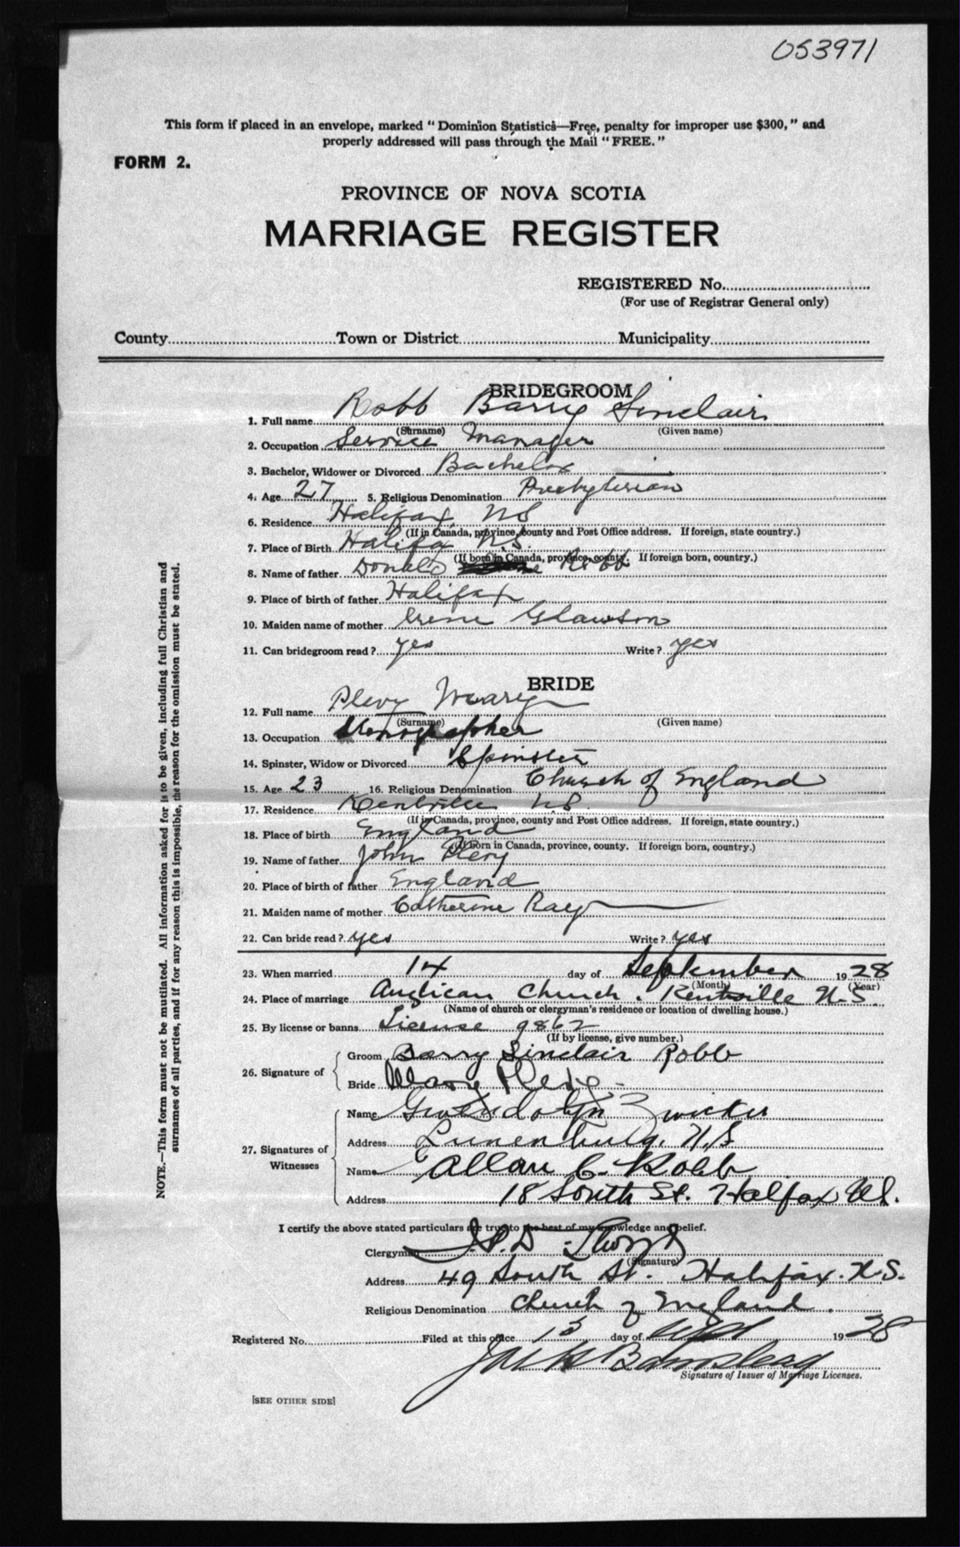 053971
This form if placed in an envelope, marked "Dominion Statistics—Free, penalty for improper use $300," and
properly addressed will pass through the Mail "FREE."
FORM 2.
PROVINCE OF NOVA SCOTIA
MARRIAGE REGISTER
REGISTERED No.
(For use of Registrar General only)
County Town or District Municipality
BRIDEGROOM
1. Full name Robb Barry Sinclair
(Surname) (Given name)
2. Occupation Service Manager
3. Bachelor, Widower or Divorced Bachelor
4. Age 27 5. Religious Denomination Presbyterian
6. Residence Halifax NS
(If in Canada, province, county and Post Office address. If foreign, state country.)
7. Place of Birth Halifax N.S.
(If born in Canada, province, county. If foreign born, country.)
8. Name of father Donald Robb
9. Place of birth of father Halifax
10. Maiden name of mother Irene Glawson
11. Can bridegroom read? yes Write? yes
BRIDE
12. Full name Plevy Mary
(Surname) (Given name)
13. Occupation Stenographer
14. Spinster, Widow or Divorced Spinster
15. Age 23 16. Religious Denomination Church of England
17. Residence Kentville NS
(If in Canada, province, county and Post Office address. If foreign, state country.)
18. Place of birth England
(If born in Canada, province, county. If foreign born, country.)
19. Name of father John Plevy
20. Place of birth of father England
21. Maiden name of mother Catherine Ray
22. Can bride read? yes Write? yes
23. When married 14 day of September 1928
(Month) (Year)
24. Place of marriage Anglican Church. Kentville N.S.
(Name of church or clergyman's residence or location of dwelling house.)
25. By license or banns License 9862
(If by license, give number.)
26. Signature of
Groom Barry Sinclair Robb
Bride Mary Plevy
27. Signatures of Witnesses
Name Gwendolyn Zwicker
Address Lunenburg, N.S
Name Allan C. Robb
Address 18 South St. Halfax N.S.
I certify the above stated particulars are true to the best of my knowledge and belief.
Clergyman J.P.D.
(Signature)
Address 49 South St. Halifax. N.S.
Religious Denomination Church of England.
Registered No. Filed at this office 15 day of 1928
Signature of Issuer of Marriage Licenses.
[SEE OTHER SIDE]
NOTE.—This form must not be mutilated. All information asked for is to be given, including full Christian and
surnames of all parties, and if for any reason this is impossible, the reason for the omission must be stated.